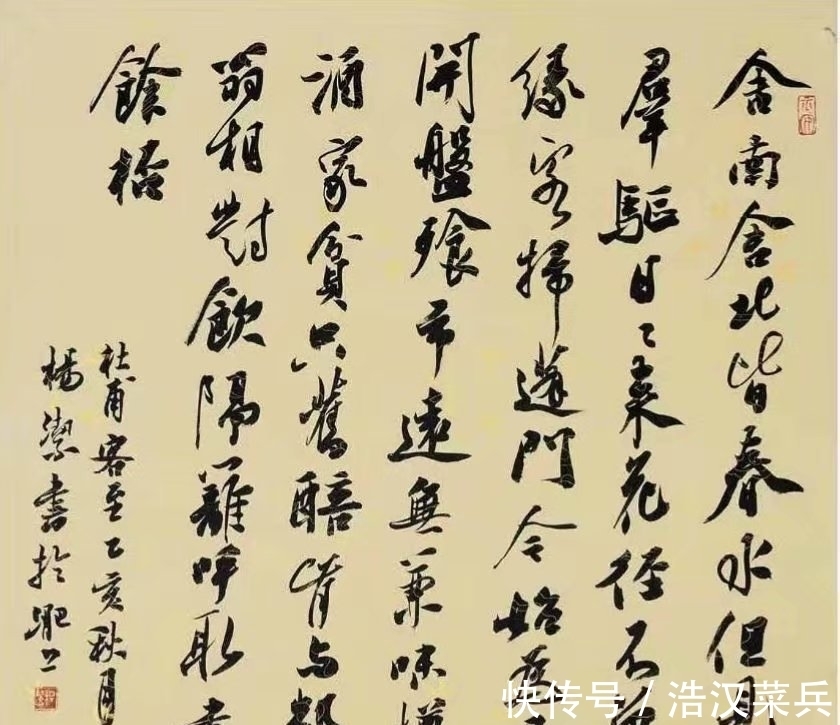 舍南舍北皆春水但
羣驅日々来花徑不
緣客掃蓬門今始為
開盤飱市遠無兼味
酒家貧只舊醅肯与
翁相對飲隔籬呼取
餘杯
杜甫客至乙亥秋月
楊潔書於肥上
快传号 / 浩汉菜兵